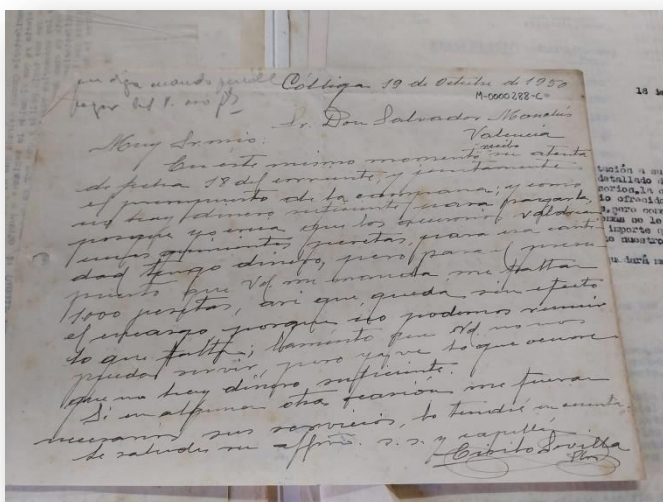 que diga cuando
pagar del
Cólliga 19 de Octubre de 1950
M-0000288-C
Sr. Don Salvador Manclús
Valencia
Muy Sr. mio:
En este mismo momento recibo su atenta
de fecha 18 del corriente y juntamente
el presupuesto de la campana; y como
no hay dinero suficiente para pagarla,
porque yo creia que los accesorios valdrian
unas quinientas pesetas, para esa canti-
dad tengo dinero, pero para el presu-
puesto que Vd. me manda me faltan
1000 pesetas, asi que, queda sin efecto
el encargo porque no podemos reunir
lo que falta; lamento que Vd. no nos
pueda servir, pero ya ve lo que ocurre
que no hay dinero suficiente.
Si en alguna otra ocasión me fueran
necesarios sus servicios, lo tendré en cuenta.
Le saluda su affmo. s. s. y capellán
Emilio Sevilla
Pbro.
18
tación a su
detallado d
sorios, la c
io ofrecid
, pero com
como se le
importe q
o nuestro
dará